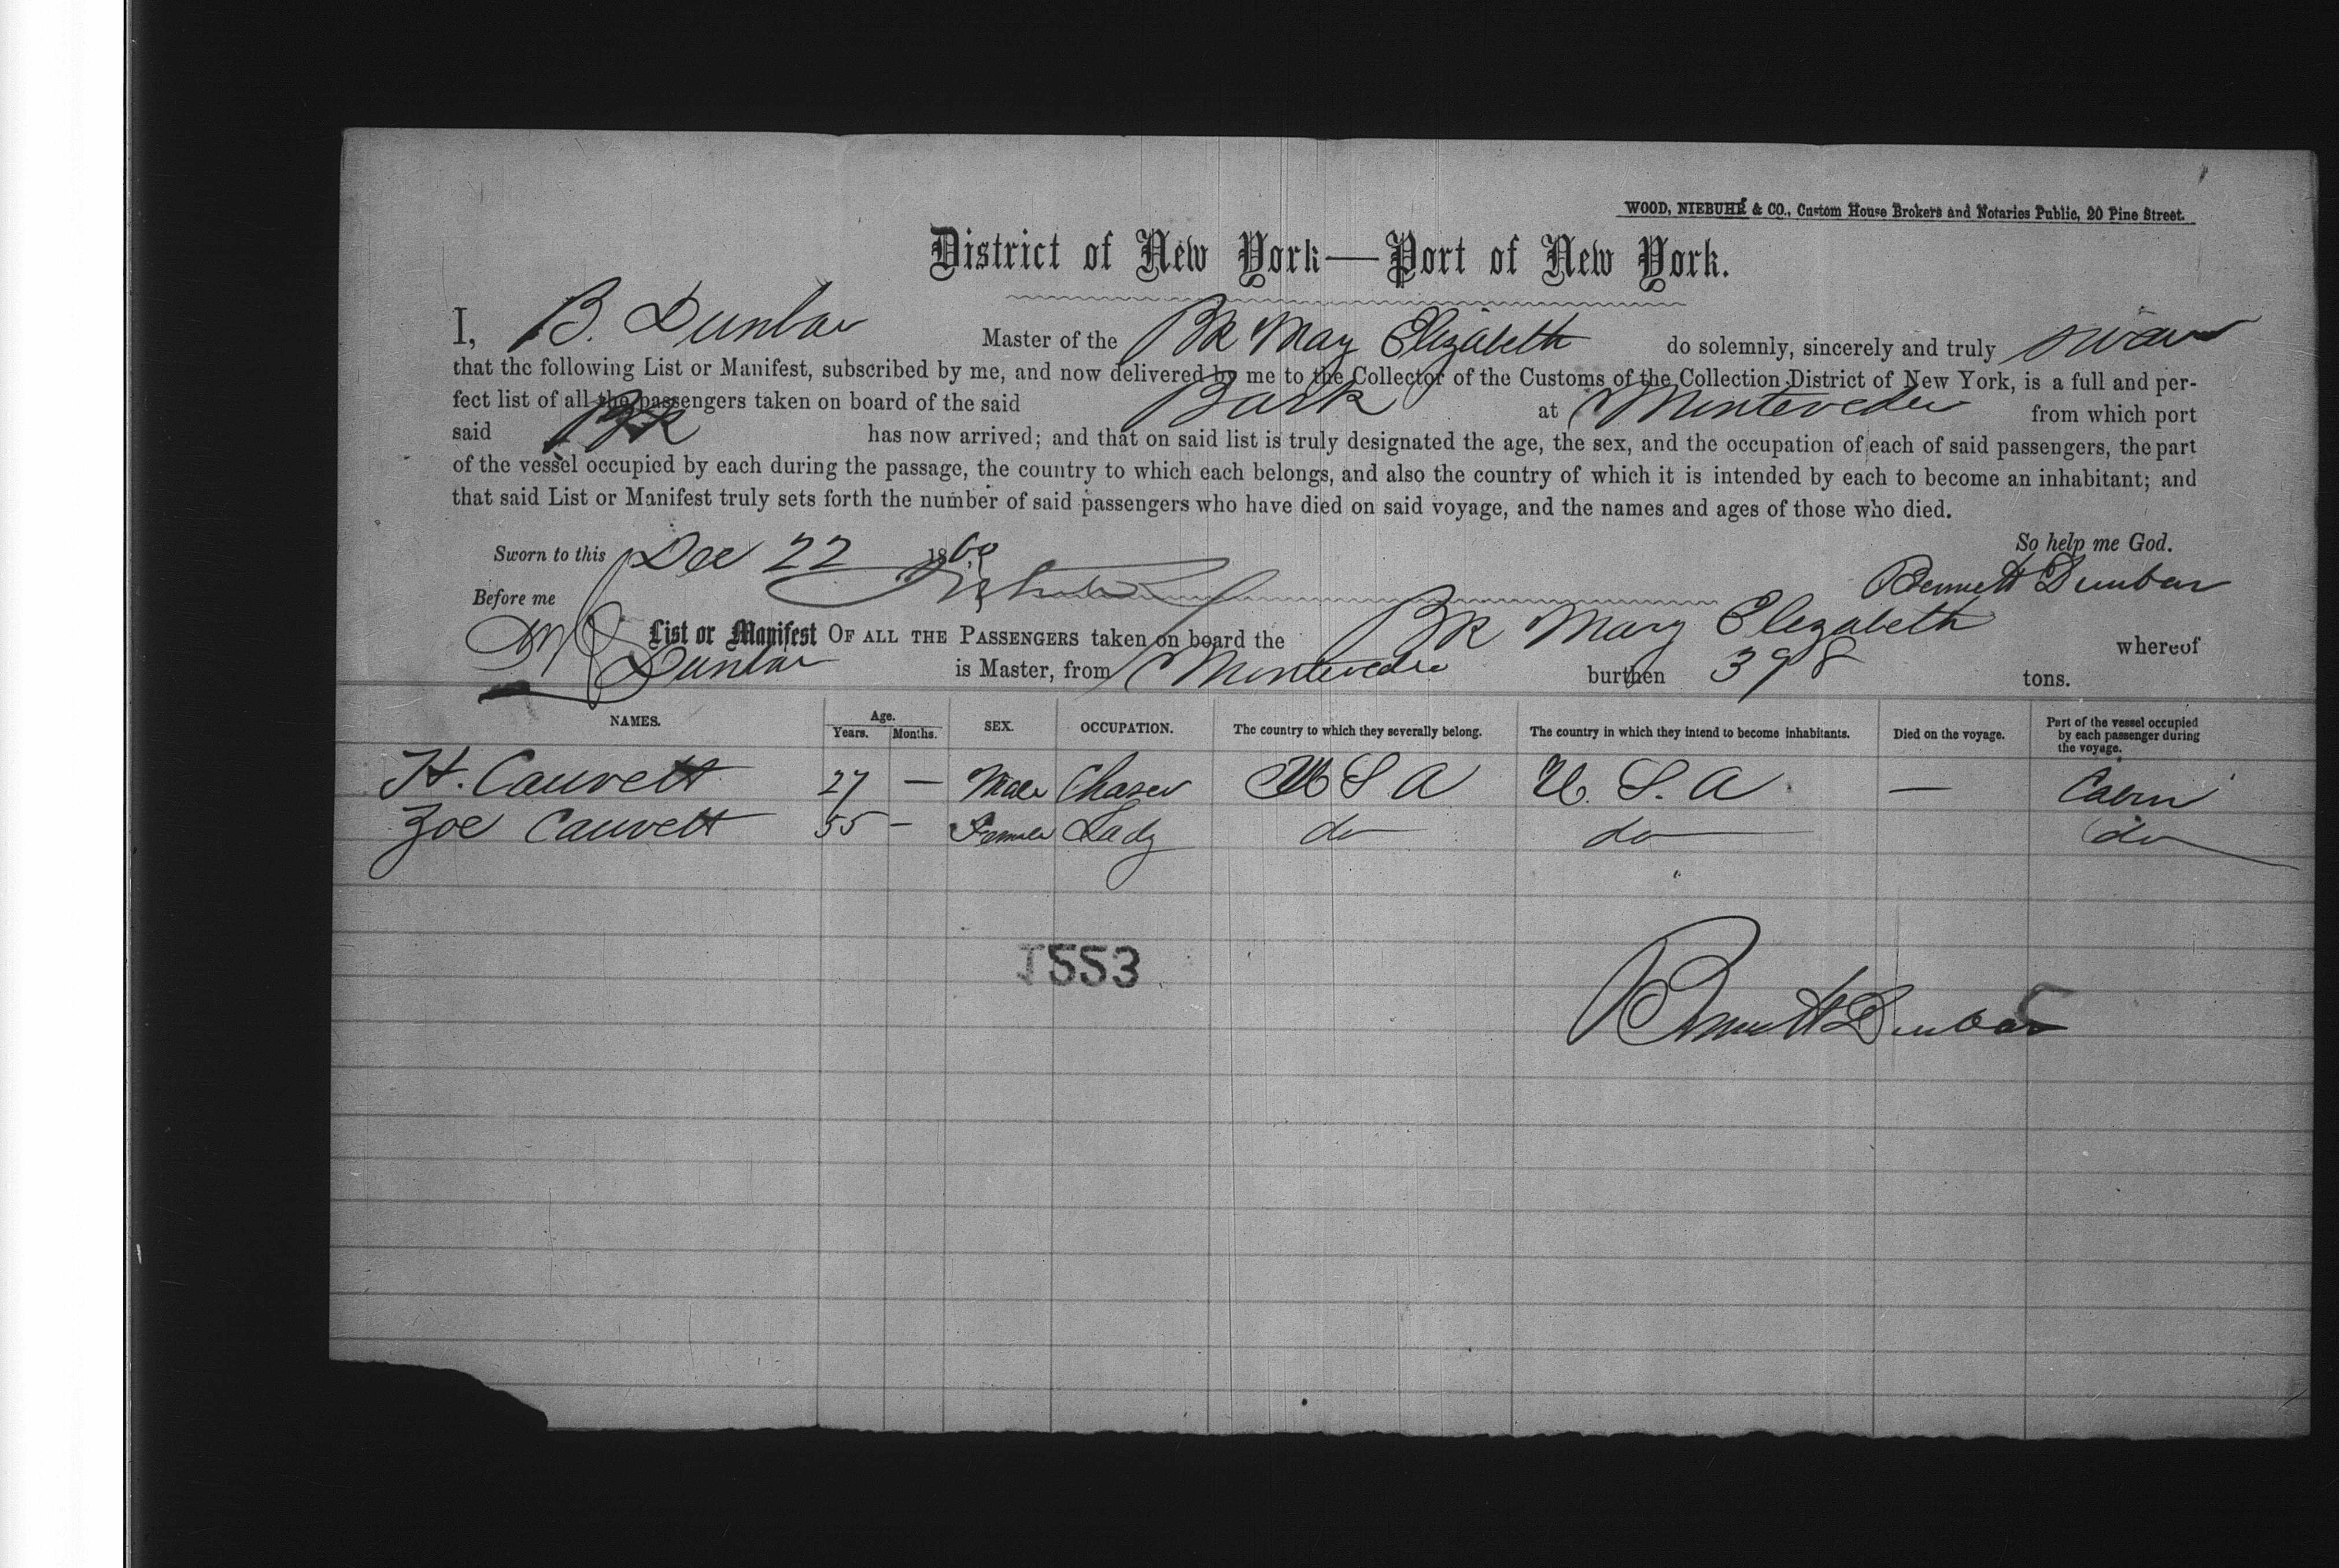 WOOD, NIEBUHR & CO., Custom House Brokers and Notaries Public, 20 Pine Street.
District of New York—Port of New York.
I, B. Dunbar Master of the Bk Mary Elizabeth do solemnly, sincerely and truly swear
that the following List or Manifest, subscribed by me, and now delivered by me to the Collector of the Customs of the Collection District of New York, is a full and per-
fect list of all the passengers taken on board of the said Bark at Montevedeo from which port
said Bk has now arrived; and that on said list is truly designated the age, the sex, and the occupation of each of said passengers, the part
of the vessel occupied by each during the passage, the country to which each belongs, and also the country of which it is intended by each to become an inhabitant; and
that said List or Manifest truly sets forth the number of said passengers who have died on said voyage, and the names and ages of those who died.
Sworn to this Dec 22 1869 So help me God.
Before me Bennett Dunbar
List or Manifest OF ALL THE PASSENGERS taken on board the Bk Mary Elezabeth whereof
Dunbar is Master, from Montevedeo burthen 398 tons.
NAMES. Age. Years. Months. SEX. OCCUPATION. The country to which they severally belong. The country in which they intend to become inhabitants. Died on the voyage. Part of the vessel occupied by each passenger during the voyage.
H. Cauvett 27 — Male U S A U. S. A — Cabin
Zoe Cauvett 55 — Female Lady do do do
1553
Bennett Dunbar